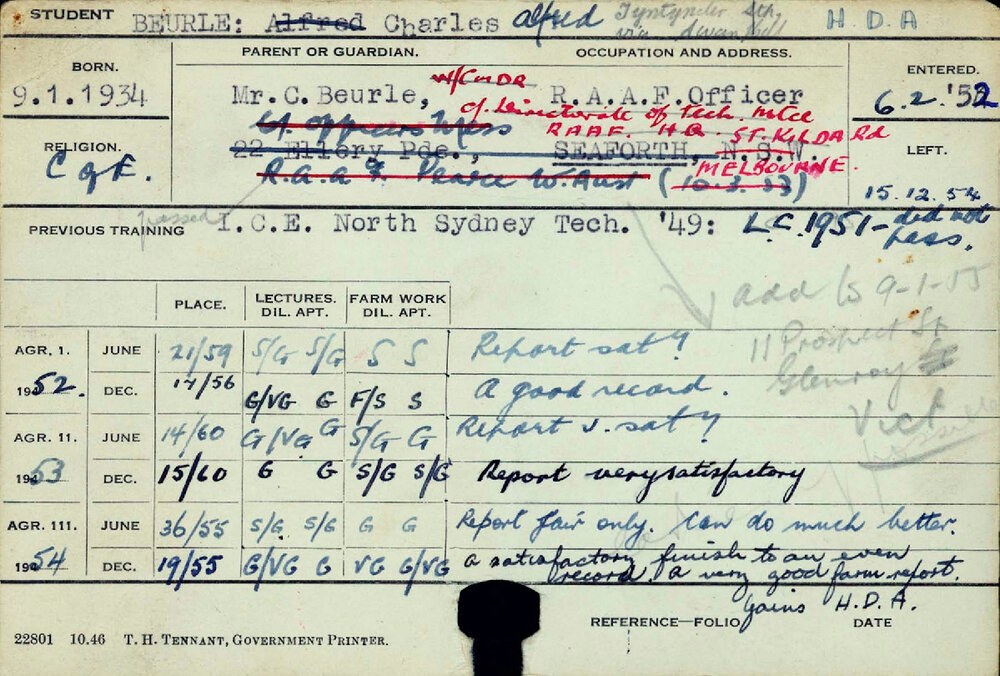 STUDENT BEURLE: Alfred Charles Alfred Tyntynder Sth. H.D.A
via Swan Hill
PARENT OR GUARDIAN. OCCUPATION AND ADDRESS.
BORN. ENTERED.
9.1.1934 Mr.C.Beurle, W/CMDR R.A.A.F.Officer 6.2.'52
c/. Directorate of Tech. Mtce
c/. Officers Mess RAAF. H.Q. ST. KILDA Rd
RELIGION. 22 Ellery Pde., SEAFORTH, N.S.W. LEFT.
C of E. MELBOURNE.
R.A.A.F. Pearce W. Aust (10.3.53) 15.12.54
passed
PREVIOUS TRAINING I.C.E. North Sydney Tech. '49: L.C. 1951 - did not
pass.
add 9-1-55
PLACE. LECTURES. FARM WORK
DIL. APT. DIL. APT.
11 Prospect St
AGR. 1. JUNE 21/59 S/G S/G S S Report sat y
Glenroy
1952. DEC. 17/56 G/VG G F/S S A good record.
Vict
AGR. 11. JUNE 14/60 G/VG G S/G G Report v. sat y
1953 DEC. 15/60 G G S/G S/G Report very satisfactory
AGR. 111. JUNE 36/55 S/G S/G G G Report fair only. Can do much better.
1954 DEC. 19/55 G/VG G VG G/VG A satisfactory finish to an even
record. A very good farm report.
Gains H.D.A.
REFERENCE—FOLIO DATE
22801 10.46 T. H. TENNANT, GOVERNMENT PRINTER.